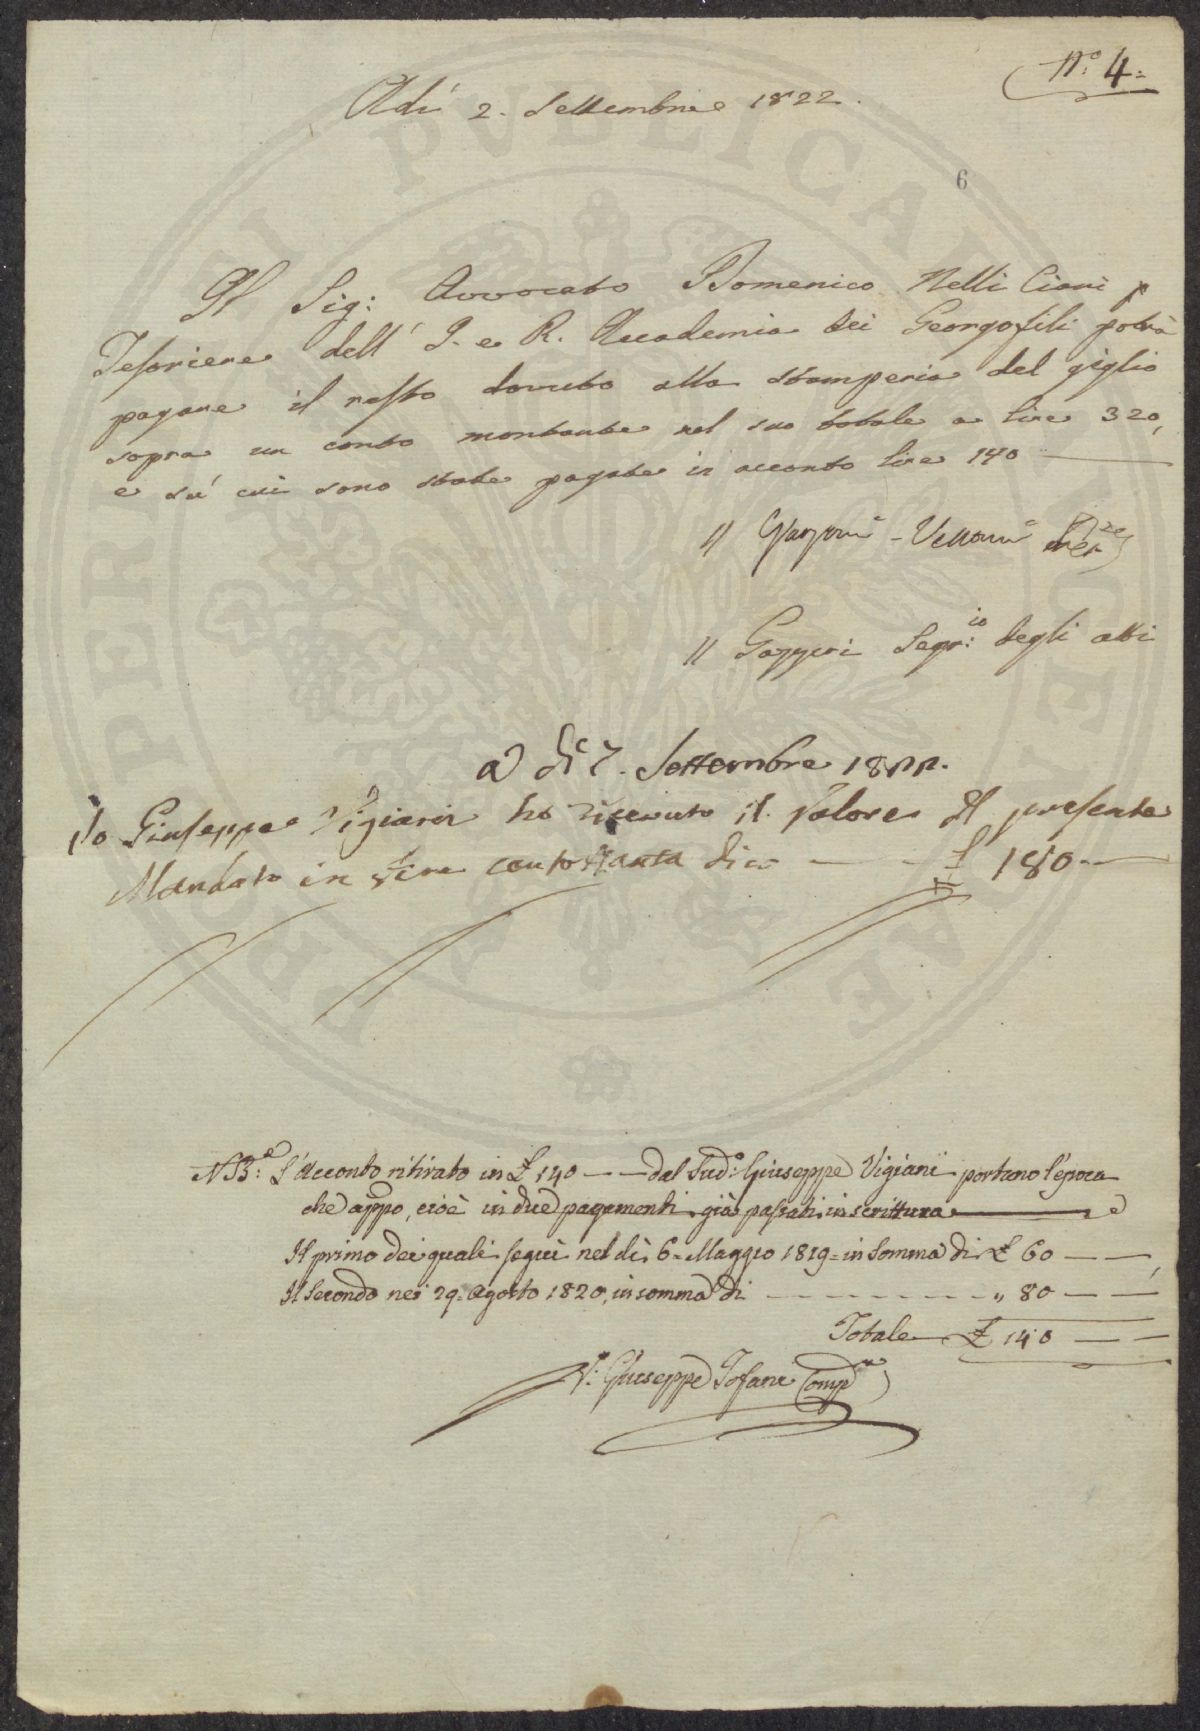 N.º 4=
Adì 2. Settembre 1822.
6
Il Sig: Avvocato Domenico Nelli Ciani p
Tesoriere dell' I. e R. Accademia dei Georgofili potrà
pagare il resto dovuto alla stamperia del giglio
sopra un conto montante nel suo totale a lire 320,
e su' cui sono state pagate in acconto lire 140
// Garzoni - Venturi
// Gazzeri Segr:io degli atti
a dì 7. Settembre 1822.
Io Giuseppe Vigiani ho ricevuto il Valore del presente
Mandato in Lire centottanta dico — £ 180 —
NB: L'Acconto ritirato in £ 140 — dal Sud:º Giuseppe Vigiani portano l'epoca
che appo, cioè in due pagamenti già passati in scrittura — e
Il primo dei quali seguì nel dì 6= Maggio 1819= in Somma di £ 60 — —
Il Secondo nei 29= Agosto 1820, in somma di - - - - - - - „ 80 — —
Totale £ 140 — —
V: Giuseppe Tofani Comp
PERPETVITATI PVBLICAE FELICITATIS